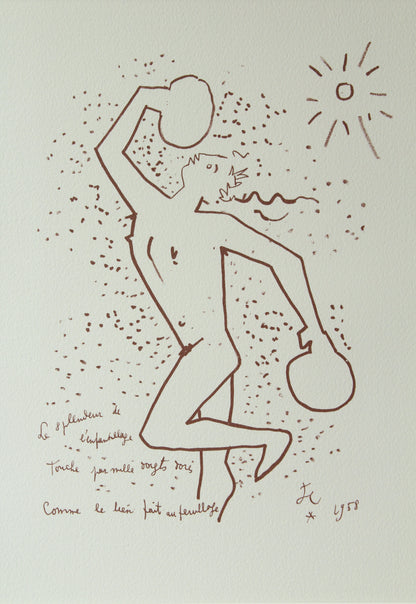 La splendeur de
l'enfantillage
Touche par mille doigts dorés
Comme le lien fait au feuillage
JC
* 1958